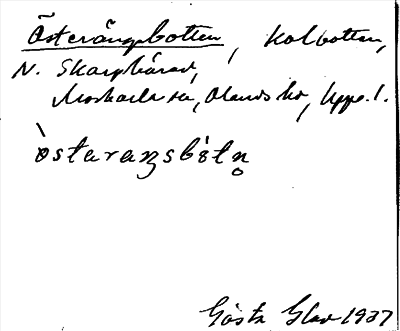 Österängsbotten, Kolbotten,
N. Skarphärad,
Morkarla sn, Olands hd, Uppl.
östaraŋsbòtn̥
Gösta Glad 1937